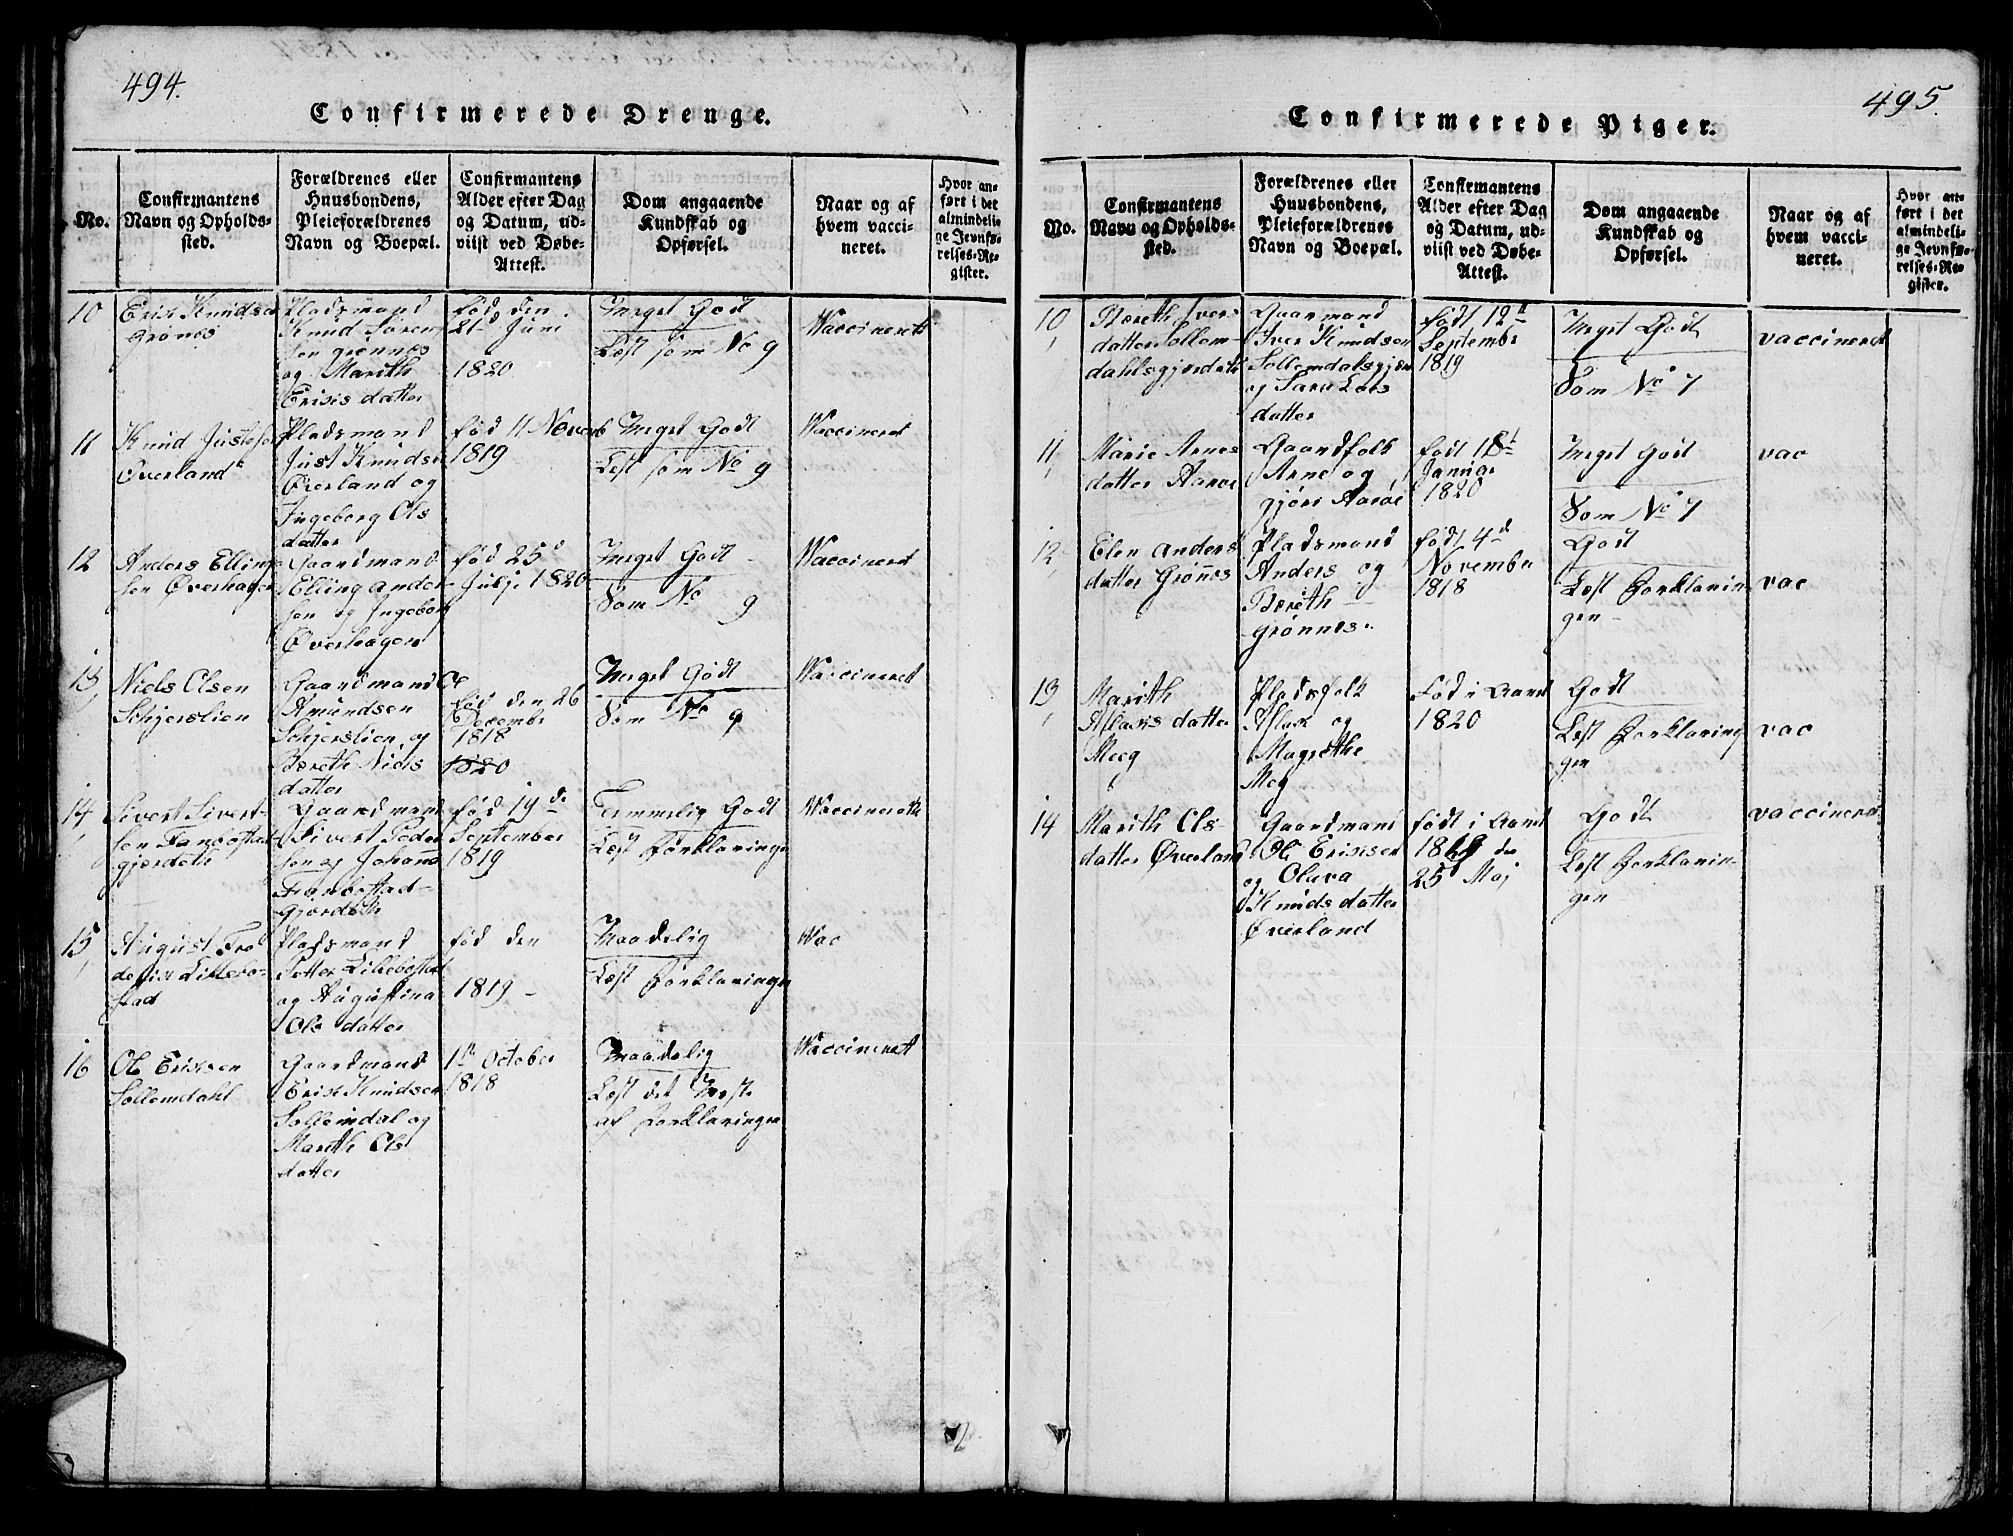 494.
Confirmerede Drenge.
No.
Confirmantens
Navn og Opholds-
sted.
Forældrenes eller
Huusbondens,
Pleieforældrenes
Navn og Boepæl.
Confirmantens
Alder efter Dag
og Datum, ud-
viist ved Døbe-
Attest.
Dom angaaende
Kundskab og
Opførsel.
Naar og af
hvem vacci-
neret.
Hvor an-
ført i det
almindeli-
ge Jevnfø-
relses-Re-
gister.
10
Erik Knudsen
Grønes
Pladsmand
Knud Søren
sen grønnes
og Marith
Eriks datter
fød den
21d Juni
1820
Meget Godt
Læst som No 9
Vaccineret
11
Knud Justesen
Øverland
Pladsmand
Just Knudsen
Øverland og
Ingeborg Ols
datter
fød 11 Novemb
1819
Meget Godt
Læst som No 9
Vaccineret
12
Anders Elling
sen Øverhagen
Gaardmand
Elling Ander
sen og Ingeborg
Øverhagen
fød 25d
Julj. 1820
Meget Godt
Som No 9
Vaccineret
13
Niels Olsen
Schjerslien
Gaardmand Ole
Amundsen
Schjerslien og
Bereth Niels
datter
fød den 26
December
1818
1820
Meget Godt
Som No 9
Vaccineret
14
Sivert Sivert-
sen
gjerdet
Gaardmand
Sivert Peder
sen og Johanna
Gjerdet
fød 19de
September
1819
Temmelig Godt
Læst Forklaringen
Vaccineret
15
August Fre
derik Lillebo-
stad
Pladsmand
Petter Lillebostad
og Augustina
Ols datter
fød den
1819 -
Maadelig
Læst Forklaringen
Vac
16
Ole Eriksen
Sollemdahl
Gaardmand
Erik Knudsen
Sollemdal og
Marith Ols
datter
1te October
1818
Maadelig
Læst det Meste
af Forklaringen
Vaccineret
495.
Confirmerede Piger.
No.
Confirmantens
Navn og Opholds-
sted.
Forældrenes eller
Huusbondens,
Pleieforældrenes
Navn og Boepæl.
Confirmantens
Alder efter Dag
og Datum, ud-
viist ved Døbe-
Attest.
Dom angaaende
Kundskab og
Opførsel.
Naar og af
hvem vacci-
neret.
Hvor an-
ført i det
almindeli-
ge Jevnfø-
relses-Re-
gister.
10
Bereth Ivers
datter Sollem-
dahlsgjerdet
Gaarmand
Iver Knudsen
Sollemdalsgjer
og Sara Lars
datter
født 12te
September
1819
Meget Godt
Som No 7
vaccineret
11
Marie Arnes
datter Aarøe
Gaardfolk
Arne og
gjøri Aarøe
født 18d
Januar
1820
Meget godt
Som No 7
vac
12
Elen Anders
datter Grønes
Pladsmand
Anders og
Bereth
Grønnes
født 4d
November
1818
Godt
Læst Forklarin
gen
vac
13
Marith
Aslaks datter
Meeg
Pladsfolk
Aslak og
Magrethe
Meg
Fød i Aaret
1820
Godt
Læst Forklarin
gen
vac
14
Marith Ols-
datter Øverland
Gaardmand
Ole Eriksen
og Oluva
Knuds datter
Øverland
født i Aaret
1819 den
25 Maj
Godt
Læst Forklarin-
gen
vaccineret